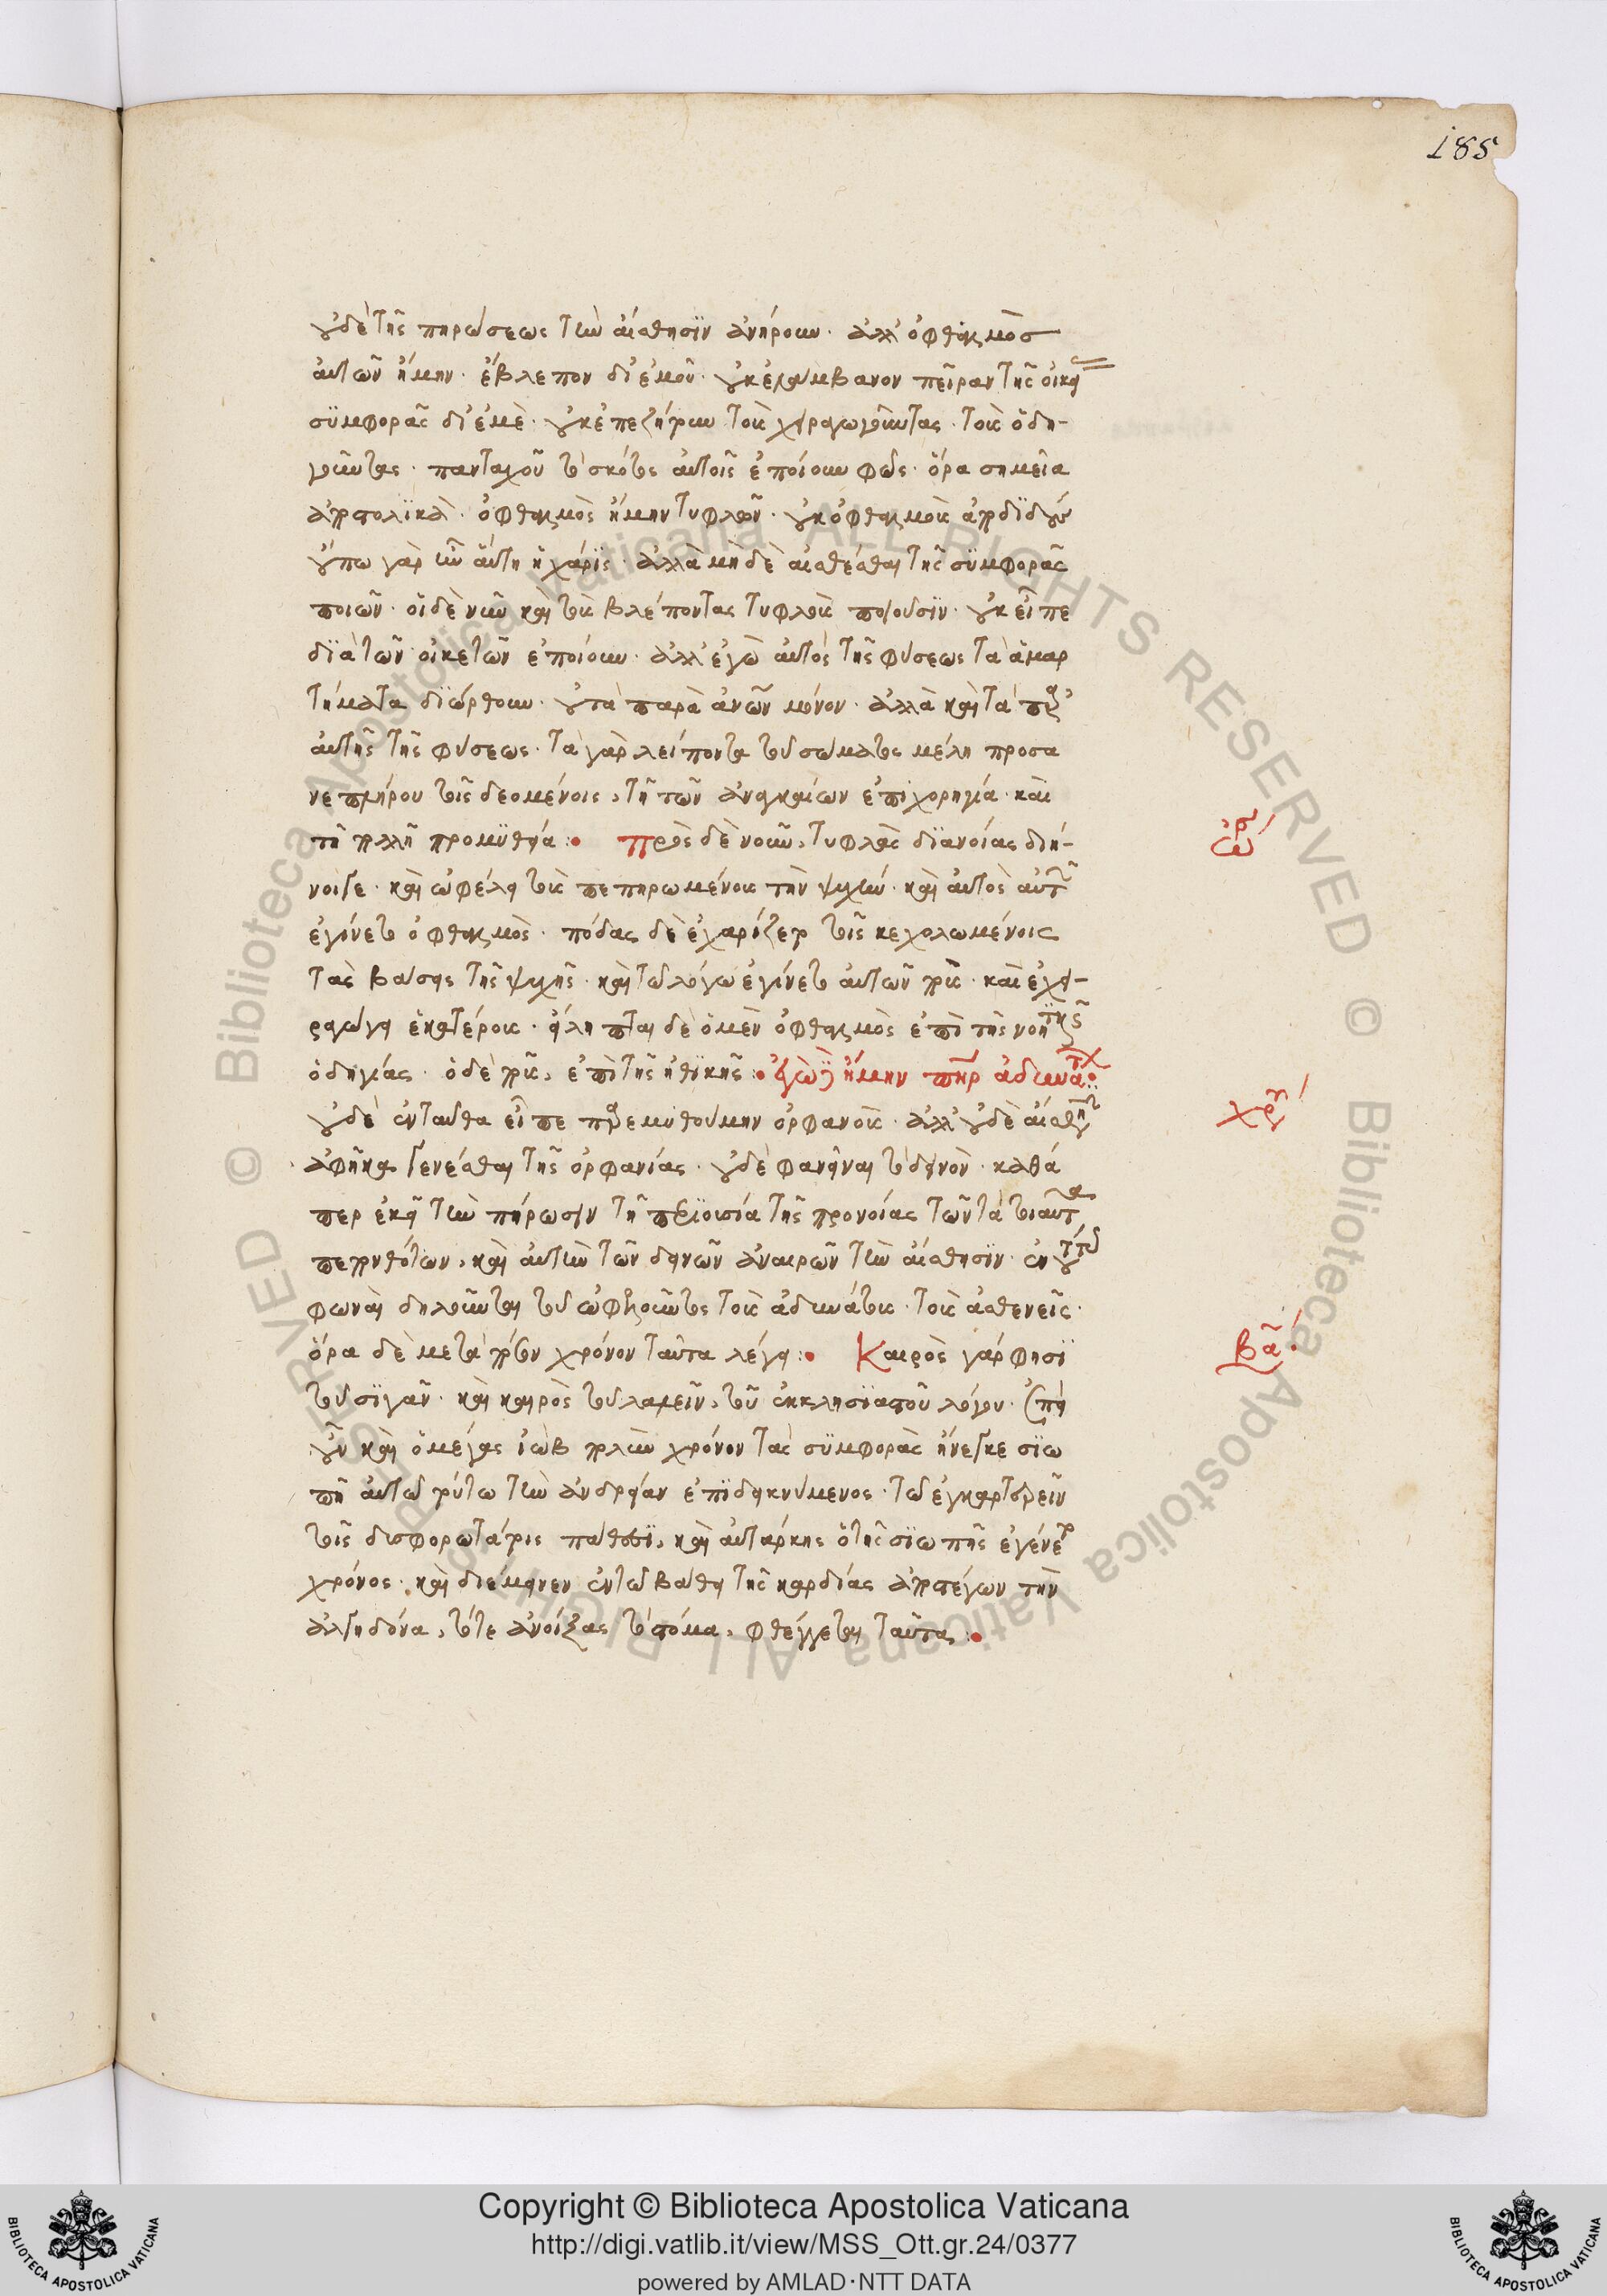 185
οὐδὲ τῆς πηρώσεως τὴν αἴσθησϊν ἀνῄρουν· ἀλλ' ὀφθαλμὸσ
αὐτῶν ἤμην· ἔβλεπον δι' ἐμοῦ· οὐκ ἐλάμβανον πεῖραν τῆς οἰκεί
συμφορᾶς δι' ἐμέ· οὐκ ἐπεζήτουν τοὺς χειραγωγοῦντας· τοὺς ὁδη-
γοῦντας· πανταχοῦ τὸ σκότος αὐτοῖς ἐποίουν φῶς· ὅρα σημεῖα
ἀποστολϊκά· ὀφθαλμὸς ἤμην τυφλῶν· οὐκ ὀφθαλμοὺς ἀποδϊδοὺς
οὔπω γὰρ ἦν αὕτη ἡ χάρϊς· ἀλλὰ μὴ δὲ αἰσθέσθαι τῆς συμφορᾶς
ποιῶν· οἱ δὲ νῦν καὶ τοὺς βλέποντας τυφλοὺς ποιοῦσϊν· οὐκ εἶπε
δϊὰ τῶν οἰκετῶν ἐποίουν· ἀλλ' ἐγὼ αὐτὸς τῆς φύσεως τὰ ἁμαρ
τήματα δϊώρθουν· οὐ τὰ παρὰ ἀνων μόνον· ἀλλὰ καὶ τὰ παρ'
αὐτῆς τῆς φύσεως· τὰ γὰρ λείποντα τοῦ σώματος μέλη προσα
νεπλήρου τοῖς δεομένοις, τῇ τῶν ἀναγκαίων ἐπιχορηγίᾳ· καὶ
τῇ πολλῇ προμυθείᾳ: πρὸς δὲ νοῦν, τυφλὰς δϊανοίας διή-
νοιγε· καὶ ὠφέλει τοὺς πεπηρωμένους τὴν ψυχήν· καὶ αὐτὸς αὐτ
ἐγίνετο ὀφθαλμός· πόδας δὲ ἐχαρίζετο τοῖς κεχολωμένοις
τὰς βάσεις τῆς ψυχῆς· καὶ τῷ λόγῳ ἐγίνετο αὐτῶν ποῦς· καὶ ἐχει-
ραγώγει ἑκατέρους· εἴληπται δὲ ὁ μὲν ὀφθαλμὸς ἐπὶ τῆς νοητῆς
ὁδηγίας· ὁ δὲ ποῦς, ἐπὶ τῆς ἠθϊκῆς: ἐγὼ ἤμην πηρ ἀδυνάτ
οὐδὲ ἐνταῦθα εἶπε παρεμυθούμην ὀρφανούς· ἀλλ' οὐδὲ αἰσθ
ἀφῆκα γενέσθαι τῆς ὀρφανίας· οὐδὲ φανῆναι τὸ δεινόν· καθά
περ ἐκεῖ τὴν πήρωσιν τῇ περϊουσίᾳ τῆς προνοίας τῶν τὰ τοιαῦτα
πεπονθότων, καὶ αὐτὴν τῶν δεινῶν ἀναιρῶν τὴν αἴσθησϊν· ἐν τούτῳ
φωναὶ δηλοῦνται τοῦ ὠφελοῦντος τοὺς ἀδυνάτους· τοὺς ἀσθενεῖς·
ὅρα δὲ μετὰ πόσον χρόνον ταῦτα λέγει: Καιρὸς γάρ φησϊ
τοῦ σϊγᾶν· καὶ καιρὸς τοῦ λαλεῖν, τοῦ ἐκκλησϊαστοῦ λόγου· ἐπεὶ
οὖν καὶ ὁ μέγας ἰὼβ πολὺν χρόνον τὰς συμφορὰς ἤνεγκε σϊω
πῇ αὐτῷ τούτῳ τὴν ἀνδρείαν ἐπϊδεικνύμενος· τῷ ἐγκαρτερεῖν
τοῖς δυσφορωτάτοις πάθεσϊ, καὶ αὐτάρκης ὁ τῆς σϊωπῆς ἐγένετο
χρόνος· καὶ διέμεινεν ἐν τῷ βάθει τῆς καρδίας ἀποστέγων τὴν
ἀλγηδόνα, τότε ἀνοίξας τὸ στόμα, φθέγγεται ταῦτας:
Copyright © Biblioteca Apostolica Vaticana
http://digi.vatlib.it/view/MSS_Ott.gr.24/0377
powered by AMLAD·NTT DATA